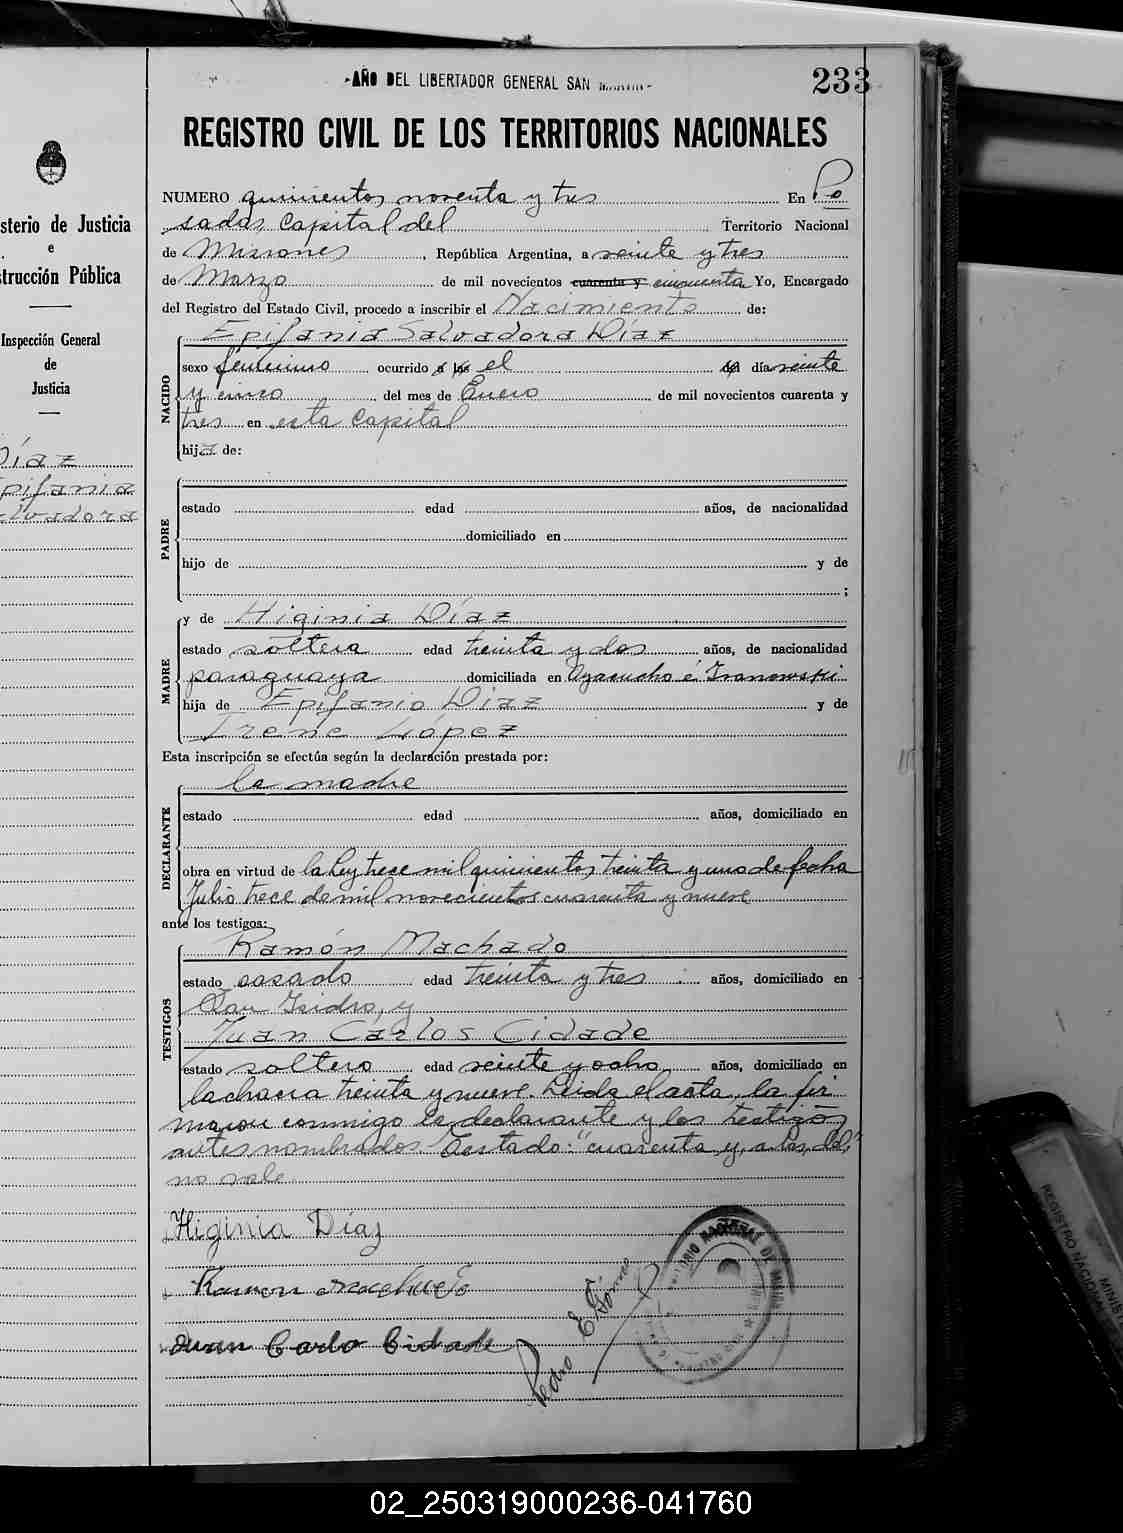 -AÑO DEL LIBERTADOR GENERAL SAN
233
REGISTRO CIVIL DE LOS TERRITORIOS NACIONALES
sterio de Justicia
e
strucción Pública
Inspección General
de
Justicia
Díaz
pifania
alvadora
NUMERO quinientos noventa y tres En Po
sadas, Capital del Territorio Nacional
de Misiones, República Argentina, a veinte y tres
de Marzo de mil novecientos cuarenta y cincuenta Yo, Encargado
del Registro del Estado Civil, procedo a inscribir el Nacimiento de:
NACIDO
Epifania Salvadora Díaz
sexo femenino ocurrido a las el del día veinte
y cinco del mes de Enero de mil novecientos cuarenta y
tres en esta Capital
hija de:
PADRE
estado edad años, de nacionalidad
domiciliado en
hijo de y de
;
MADRE
y de Higinia Díaz
estado soltera edad treinta y dos años, de nacionalidad
paraguaya domiciliada en Ayacucho é Iranowski
hija de Epifanio Díaz y de
Irene López
Esta inscripción se efectúa según la declaración prestada por:
DECLARANTE
la madre
estado edad años, domiciliado en
obra en virtud de la Ley trece mil quinientos treinta y uno de fecha
Julio trece de mil novecientos cuarenta y nueve
ante los testigos:
TESTIGOS
Ramón Machado
estado casado edad treinta y tres años, domiciliado en
San Isidro, y
Juan Carlos Cidade
estado soltero edad veinte y ocho años, domiciliado en
la chacra treinta y nueve. Leida el acta, la fir
maron conmigo la declarante y los testigos
antes nombrados. Testado: "cuarenta y, a las, del,"
no vale
Higinia Díaz
Ramon Machado
Juan Carlo Cidade
Pedro E Gómez
TERRITORIO NACIONAL DE MISIONES
REGISTRO NACIONAL
MINIST
02_250319000236-041760